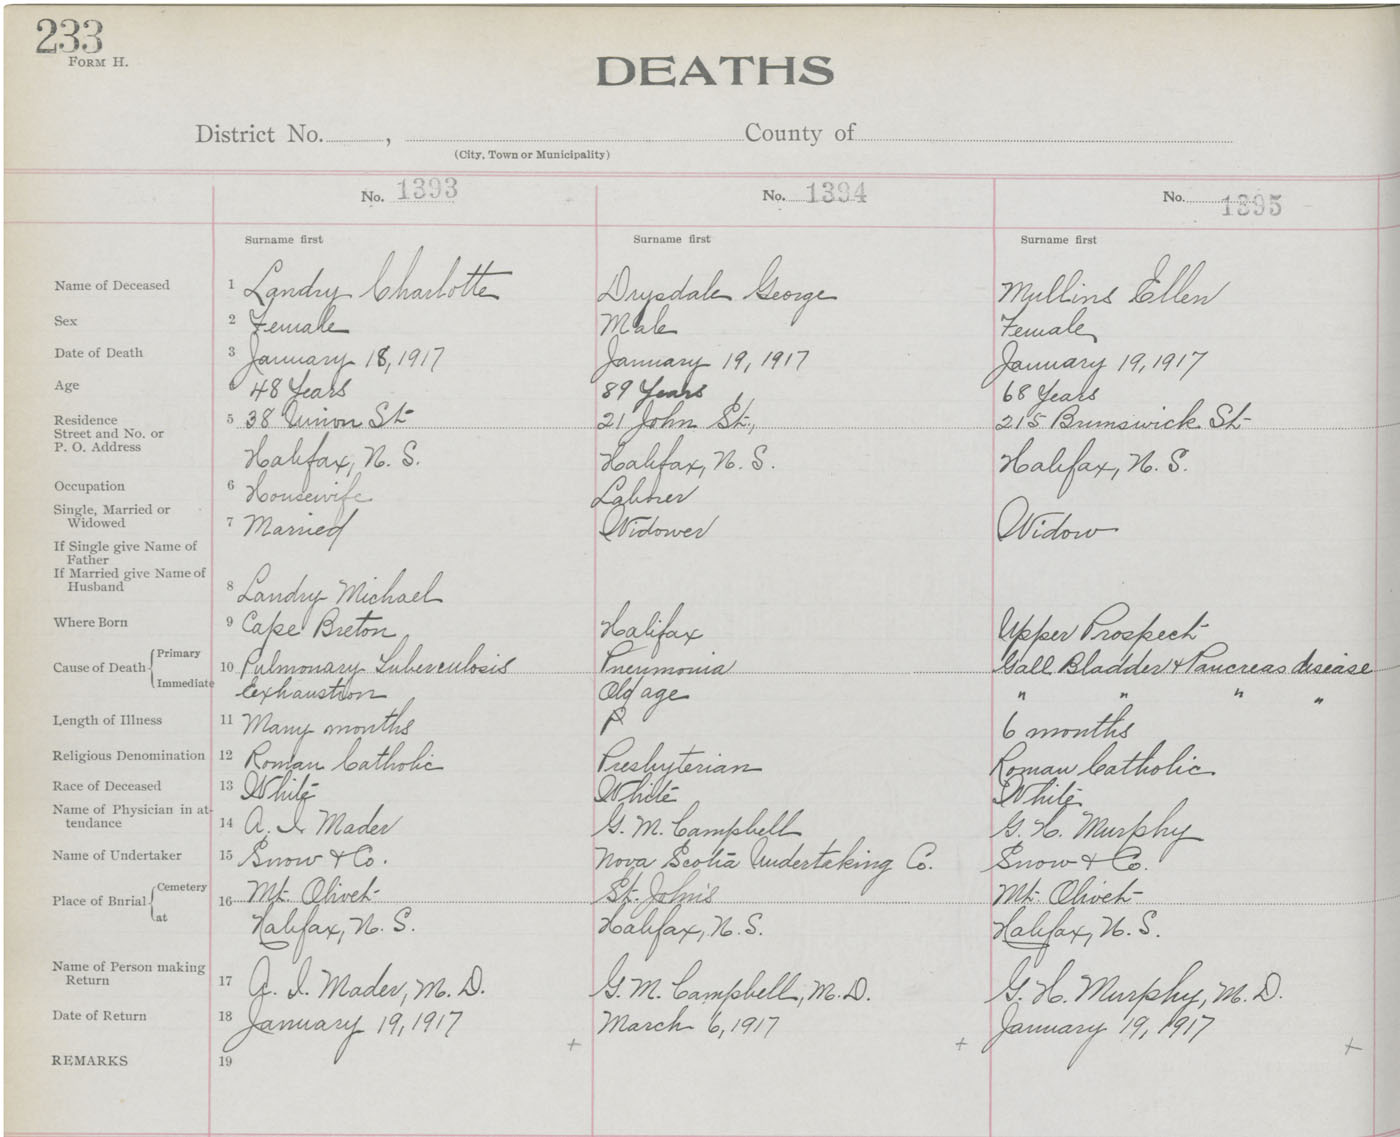 233
FORM H.
DEATHS
District No. , County of
(City, Town or Municipality)
No. 1393 No. 1394 No. 1395
Surname first Surname first Surname first
Name of Deceased 1 Landry Charlotte Drysdale George Mullins Ellen
Sex 2 Female Male Female
Date of Death 3 January 18, 1917 January 19, 1917 January 19, 1917
Age 48 Years 89 Years 68 Years
Residence 5 38 Union St 21 John St., 215 Brunswick St
Street and No. or
P. O. Address Halifax, N. S. Halifax, N. S. Halifax, N. S.
Occupation 6 Housewife Laborer
Single, Married or
Widowed 7 Married Widower Widow
If Single give Name of
Father
If Married give Name of
Husband 8 Landry Michael
Where Born 9 Cape Breton Halifax Upper Prospect
Cause of Death Primary 10 Pulmonary Tuberculosis Pneumonia Gall Bladder & Pancreas disease
Immediate Exhaustion Old age " " " "
Length of Illness 11 Many months 6 months
Religious Denomination 12 Roman Catholic Presbyterian Roman Catholic
Race of Deceased 13 White White White
Name of Physician in at-
tendance 14 A. I. Mader G. M. Campbell G. H. Murphy
Name of Undertaker 15 Snow & Co. Nova Scotia Undertaking Co. Snow & Co.
Place of Burial Cemetery 16 Mt. Olivet St. John's Mt. Olivet
at Halifax, N. S. Halifax, N. S. Halifax, N. S.
Name of Person making
Return 17 A. I. Mader, M. D. G. M. Campbell, M. D. G. H. Murphy, M. D.
Date of Return 18 January 19, 1917 March 6, 1917 January 19, 1917
+ + +
REMARKS 19